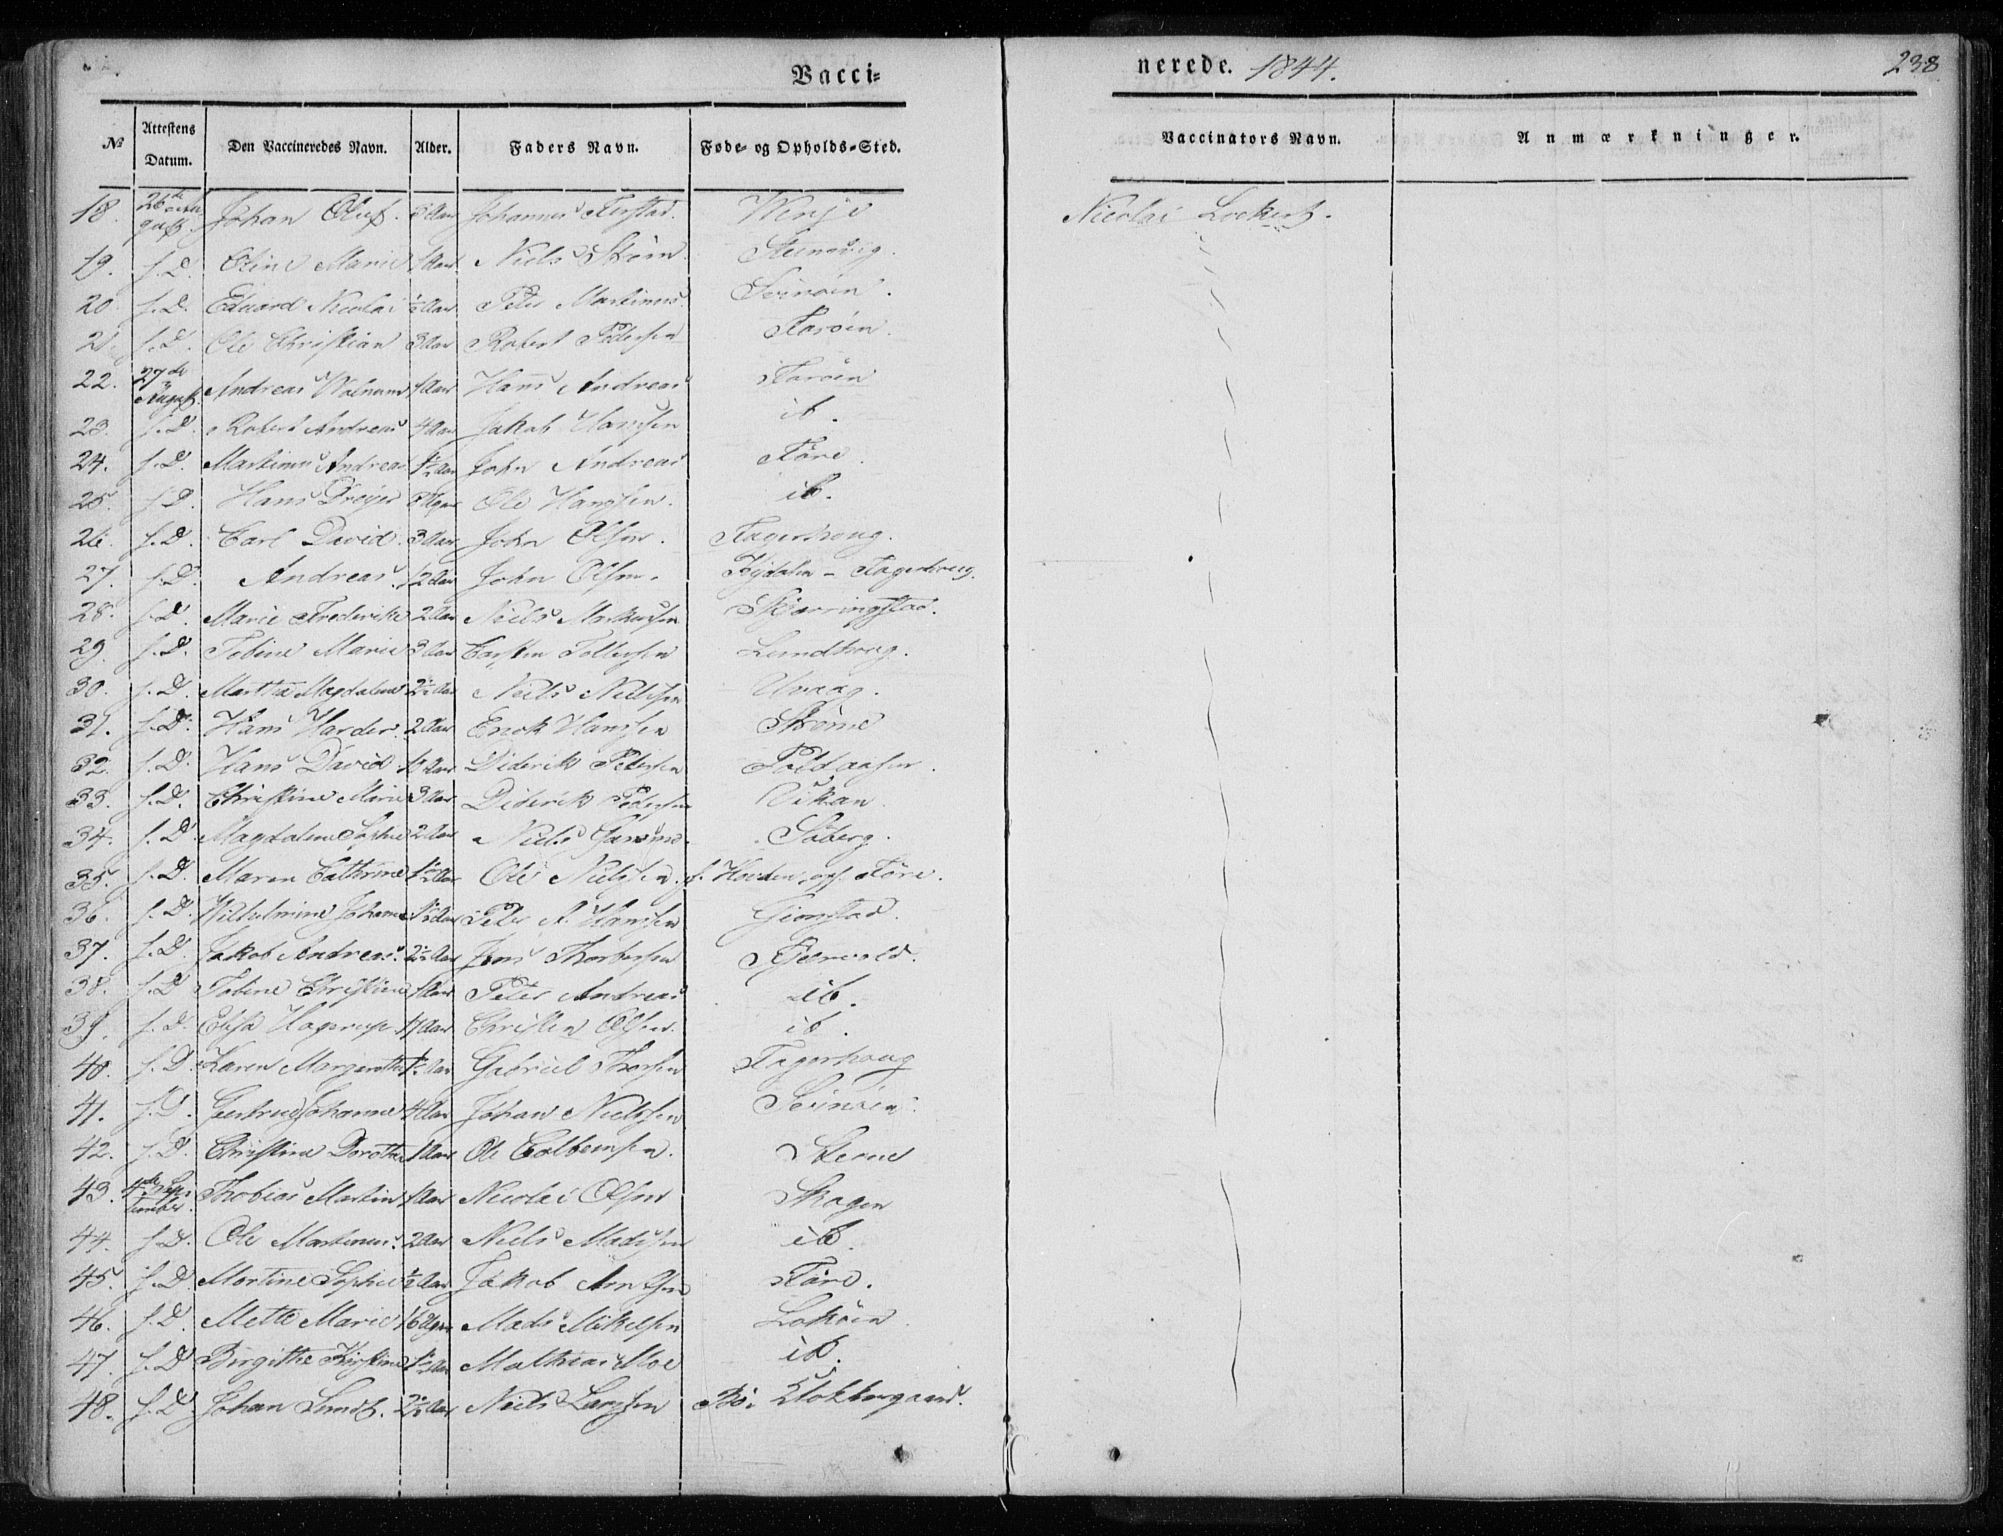 Vacci=
nerede. 1844.
238
№ Attestens Datum. Den Vaccineredes Navn. Alder. Faders Navn. Føde= og Opholds=Sted. Vaccinators Navn. Anmærkninger.
18. 26de Johan Oluf. Aar Johannes Wenje Nicolai Lockert.
19. s. D. Eline Marie 1 Aar Niels Steensvig.
20. s. D. Eduard Nicolai ½ Aar Peter Martinus
21. s. D. Ole Christian 3 Aar Robert Pedersen Farøen.
22. 27de August. Andreas Aar Hans Andreas Farøen
23. s. D. Robert Andreas 4 Aar Jakob Hanssen ib.
24. s. D. Martinus Andreas 1½ Aar John Andreas Føre.
25. s. D. Hans Dreyer Uger Ole Hanssen. ib.
26. s. D. Carl David. 3 Aar John Olsen. Fagerhoug.
27. s. D. Andreas. ½ Aar John Olsen. – Fagerhoug.
28. s. D. Marie Frederikke 2 Aar Niels Markussen Skjærringstad.
29. s. D. Tobine Marie 3 Aar Carsten Tollefsen Lundberg.
30. s. D. Martha Magdalena 2½ Aar Niels Nielssen Uvaag.
31. s. D. Hans Harder. 2 Aar Enok Hanssen Strøme
32. s. D. Hans David Aar Diderik Pedersen
33. s. D. Christine Marie 3 Aar Diderik Pedersen Vikan.
34. s. D. Magdalene Sophie 2 Aar Niels Søberg.
35. s. D. Maren Cathrine 1½ Aar Ole Nielssen. f. Hovden, op. Føre.
36. s. D. Vilhelmine Johanna 1½ Aar Peter A. Hanssen Gimstad.
37. s. D. Jakob Andreas. 2½ Aar Jens Thorbersen
38. s. D. Tobine Christine 1 Aar Peter Andreas ib.
39. s. D. Hagerup. Aar Christen Olsen. ib.
40. s. D. Karen Margarethe Aar Gabriel Thorsen Fagerhoug
41. s. D. Gertrud Johanne Aar Johan Nielssen
42. s. D. Christine Dorothea 1 Aar Ole Colbensen. Steene
43. 4de September Thobias Martin 1 Aar Nicolai Olsen Skagen
44. s. D. Ole Martinus. 2 Aar Niels Madssen ib.
45. s. D. Martine Sophie ½ Aar Jakob Arntsen Føre.
46. s. D. Mette Marie 16 Uger Mads Mikelsen
47. s. D. Birgithe Kirstine 1½ Aar Mathias Moe ib.
48. s. D. Johan Lund. 2½ Aar Niels Larssen Bø: Klokkergaard.